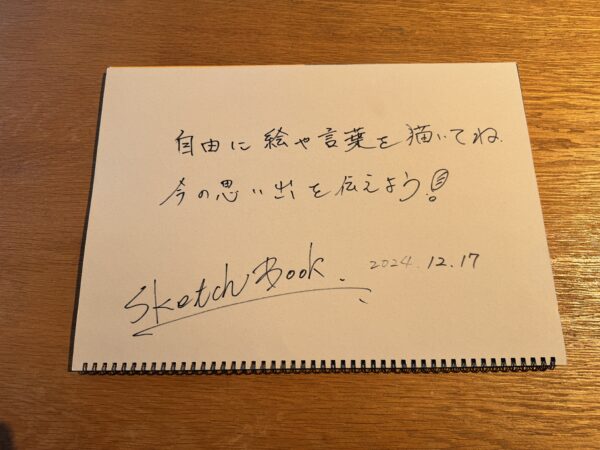 自由に絵や言葉を描いてね
今の思い出を伝えよう!
Sketch Book. 2024.12.17